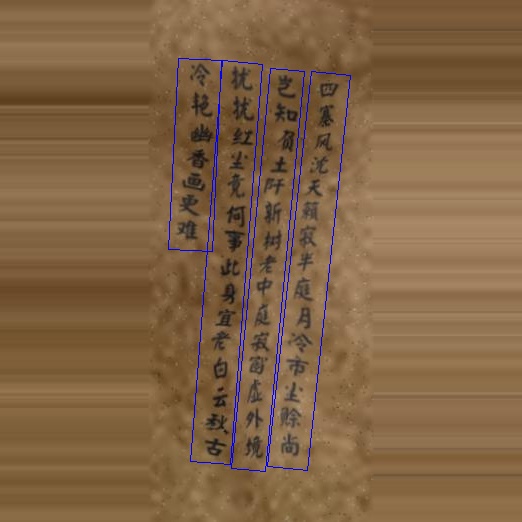 四寨风沈天籁寂半庭月冷市尘赊尚
岂知负土阡新树老中庭寂窗虚外境
扰扰红尘竟何事此身宜老白云秋古
冷艳幽香画更难